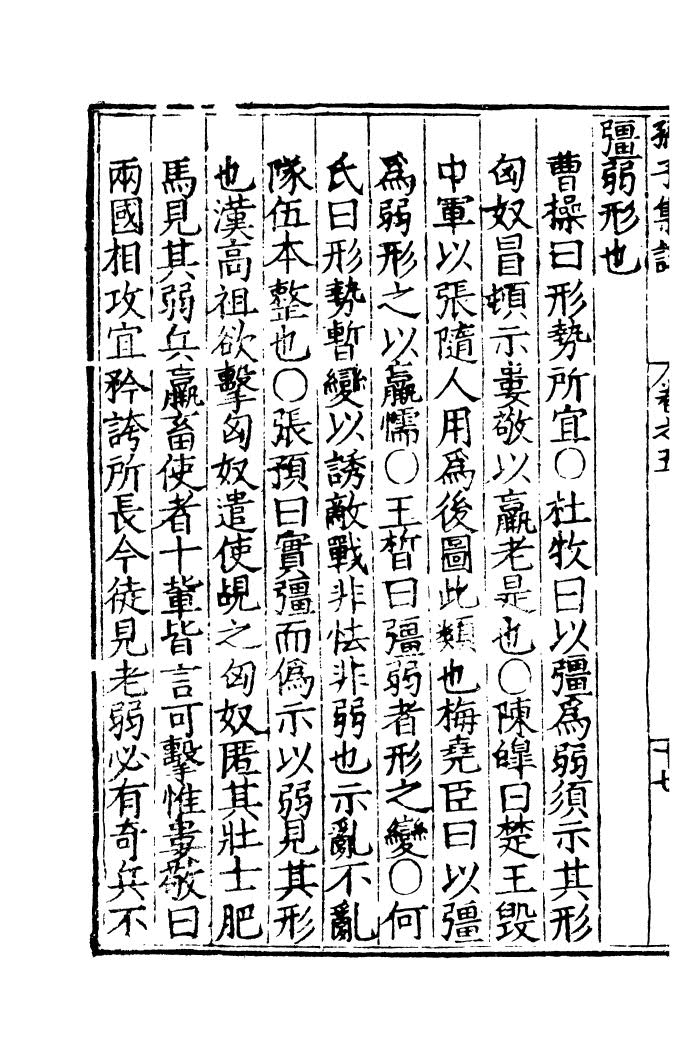 孫子集註
卷之五
十七
彊弱形也
曹操曰形勢所宜○杜牧曰以彊爲弱須示其形
匈奴冒頓示婁敬以羸老是也○陳皥曰楚王毀
中軍以張隨人用爲後圖此類也梅堯臣曰以彊
爲弱形之以羸懦○王晳曰彊弱者形之變○何
氏曰形勢暫變以誘敵戰非怯非弱也示亂不亂
隊伍本整也○張預曰實彊而僞示以弱見其形
也漢高祖欲擊匈奴遣使覘之匈奴匿其壯士肥
馬見其弱兵羸畜使者十軰皆言可擊惟婁敬曰
兩國相攻宜矜誇所長今徒見老弱必有奇兵不